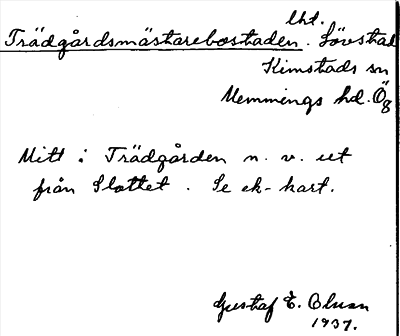 lht.
Trädgårdsmästarebostaden. Lövstad
Kimstads sn
Memmings hd. Ög
Mitt i Trädgården n. v. ut
från Slottet. Se ek-kart.
Gustaf E. Olsson
1937.